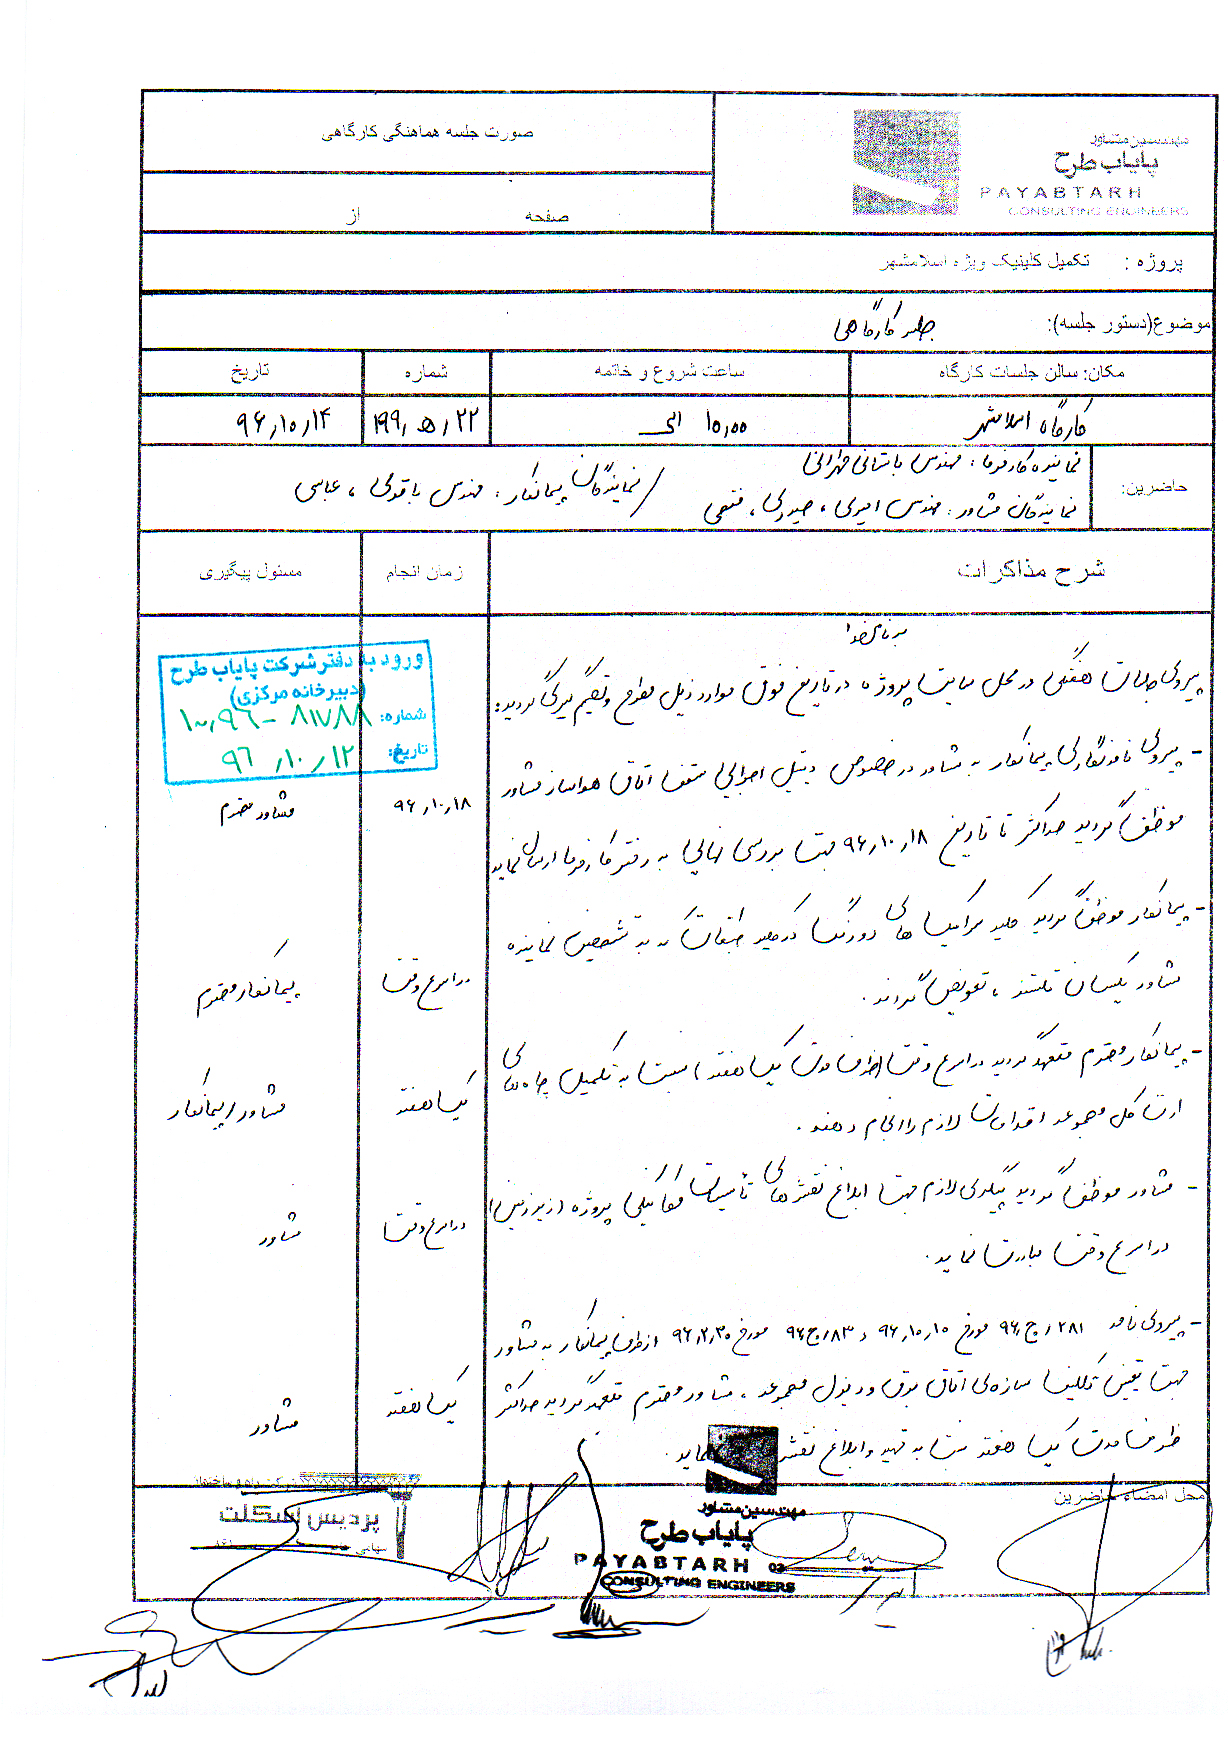 صورت جلسه هماهنگی کارگاهی
مهندسین مشاور
پایاب طرح
PAYABTARH
CONSULTING ENGINEERS
صفحه از
پروژه : تکمیل کلینیک ویژه اسلامشهر
موضوع(دستور جلسه): جلسه کارگاهی
مکان: سالن جلسات کارگاه ساعت شروع و خاتمه شماره تاریخ
کارگاه اسلامشهر ۱۵٫۰۰ الی ۹۶٫۱۰٫۱۴
حاضرین: نماینده کارفرما : مهندس باستانی تهرانی
نمایندگان مشاور : مهندس امیری ، حیدری ، فتحی / نمایندگان پیمانکار : مهندس یاقوتی ، عباسی
شرح مذاکرات زمان انجام مسئول پیگیری
به نام خدا
پیروی جلسات هفتگی در محل سایت پروژه در تاریخ فوق موارد ذیل مطرح و تصمیم گیری گردید:
ورود به دفتر شرکت پایاب طرح
(دبیرخانه مرکزی)
شماره: ۱۰٫۹۶-۸۱۷۸۸
تاریخ: ۹۶٫۱۰٫۱۲
- پیروی نامه نگاری پیمانکار به مشاور در خصوص دیتیل اجرایی سقف اتاق هواساز مشاور
موظف گردید حداکثر تا تاریخ ۹۶٫۱۰٫۱۸ جهت بررسی نهایی به دفتر کارفرما ارسال نماید
۹۶٫۱۰٫۱۸ مشاور محترم
- پیمانکار موظف گردید کلیه سرامیک های دو رنگ در کلیه طبقات که به تشخیص نماینده
مشاور یکسان نیستند ، تعویض گردند .
در اسرع وقت پیمانکار محترم
- پیمانکار محترم متعهد گردید در اسرع وقت (ظرف مدت یک هفته) نسبت به تکمیل چاه های
ارت کل مجموعه اقدامات لازم را انجام دهند .
یک هفته مشاور/پیمانکار
- مشاور موظف گردید پیگیری لازم جهت ابلاغ نقشه های تأسیسات مکانیکی پروژه (زیرزمین)
در اسرع وقت مبادرت نماید .
در اسرع وقت مشاور
- پیروی نامه ۲۸۱/ج/۹۶ مورخ ۹۶٫۱۰٫۱۰ و ۸۳/ج/۹۶ مورخ ۹۶٫۲٫۳۰ از طرف پیمانکار به مشاور
جهت تعیین تکلیف سازه ی اتاق برق و دیزل مجموعه ، مشاور محترم متعهد گردید حداکثر
ظرف مدت یک هفته نسبت به تهیه و ابلاغ نقشه نماید .
یک هفته مشاور
محل امضاء حاضرین
مهندسین مشاور
پایاب طرح
PAYABTARH
CONSULTING ENGINEERS
پردیس اسکلت